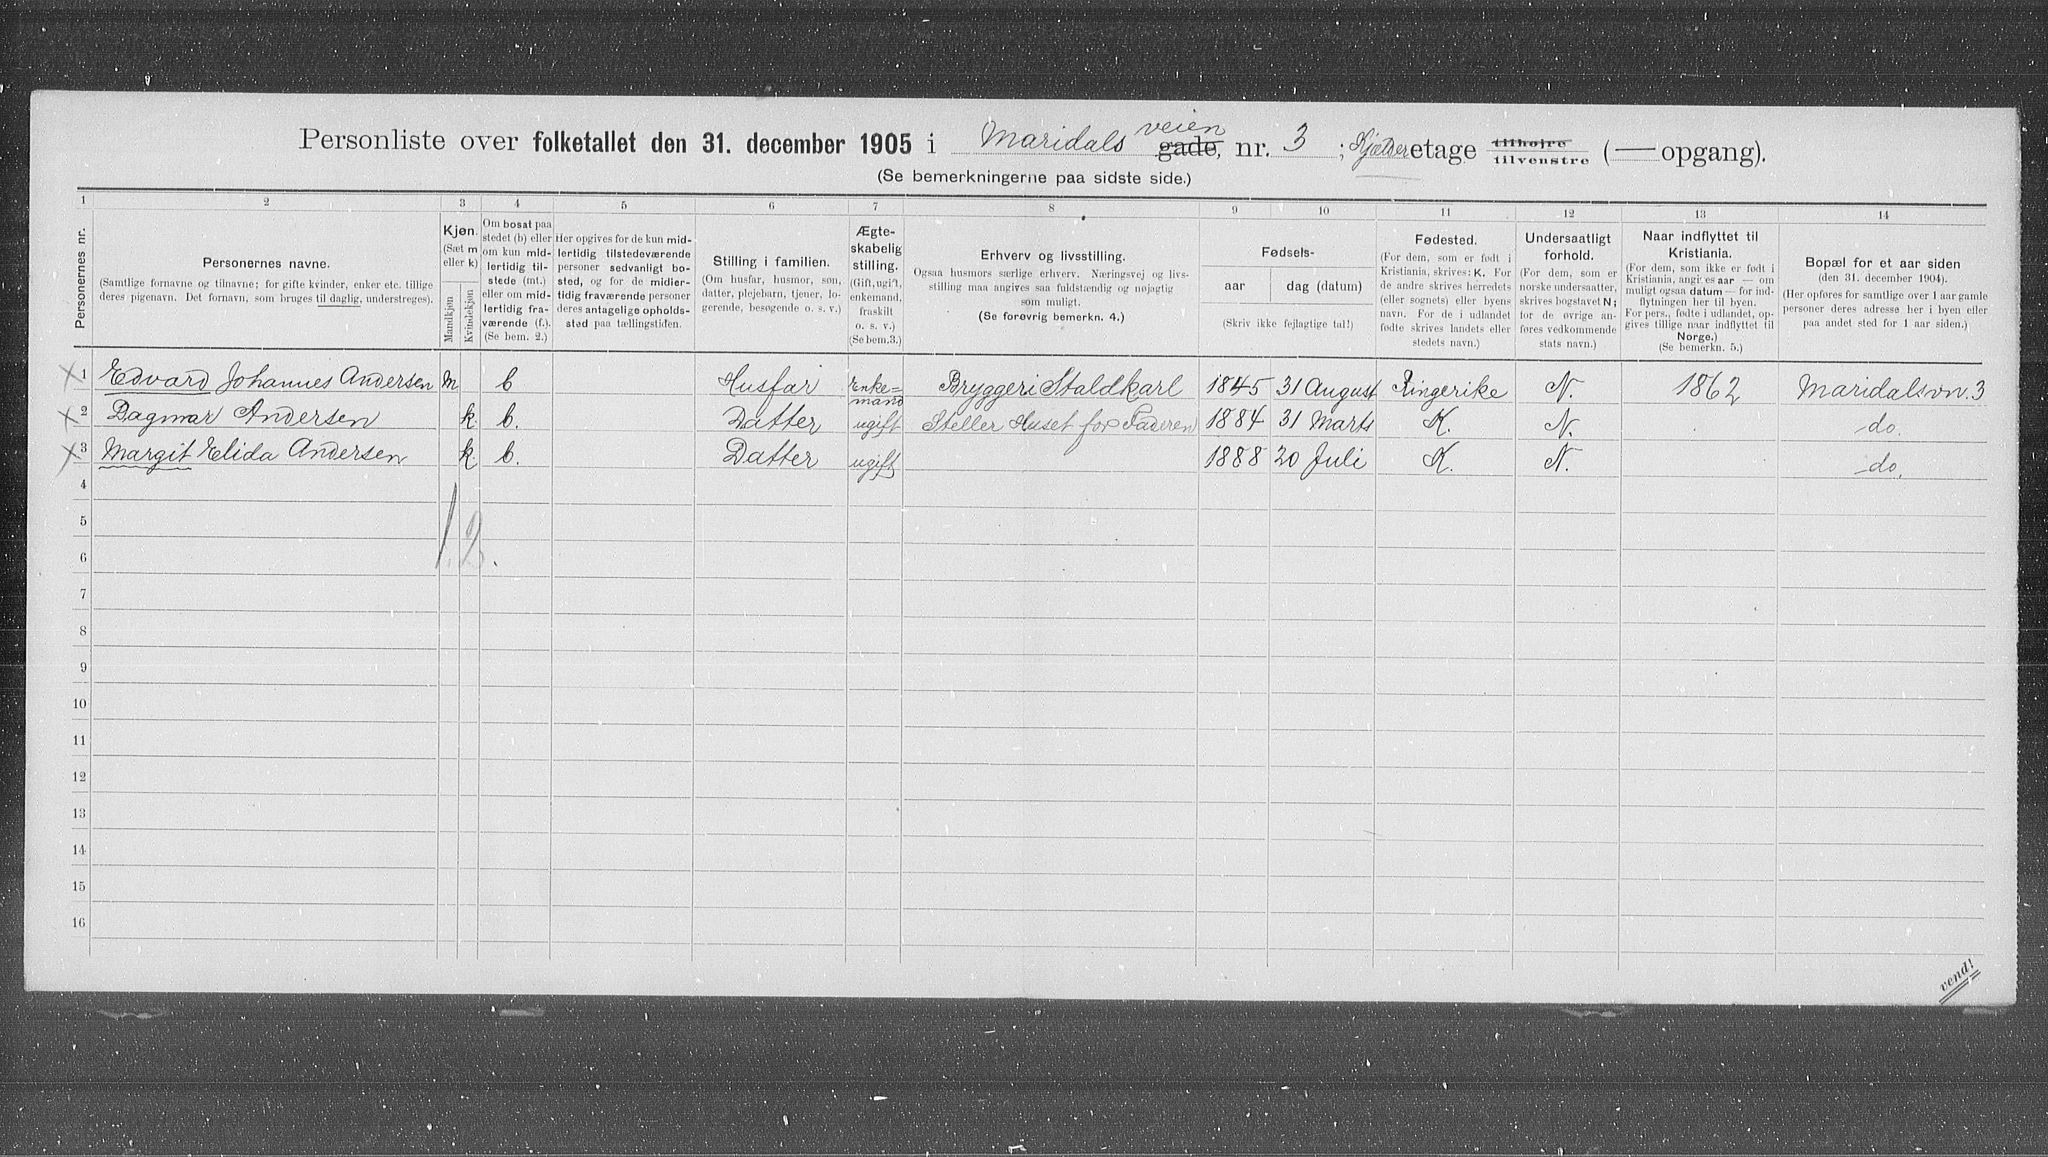 Personliste over folketallet den 31. december 1905 i Maridals veien gade, nr. 3 ; Kjælder etage tilhøjre tilvenstre (— opgang).
(Se bemerkningerne paa sidste side.)
1 2 3 4 5 6 7 8 9 10 11 12 13 14
Personernes nr.
Personernes navne.
(Samtlige fornavne og tilnavne; for gifte kvinder, enker etc. tillige
deres pigenavn. Det fornavn, som bruges til daglig, understreges).
Kjøn.
(Sæt m
eller k)
Mandkjøn
Kvindekjøn
Om bosat paa
stedet (b) eller
om kun mid-
lertidig til-
stede (mt.)
eller om mid-
lertidig fra-
værende (f.).
(Se bem. 2.)
Her opgives for de kun mid-
lertidig tilstedeværende
personer sedvanligt bo-
sted, og for de midler-
tidig fraværende personer
deres antagelige opholds-
sted paa tællingstiden.
Stilling i familien.
(Om husfar, husmor, søn,
datter, plejebarn, tjener, lo-
gerende, besøgende o. s. v.)
Ægte-
skabelig
stilling.
(Gift, ugift,
enkemand,
fraskilt
o. s. v.)
(Se bem.3.)
Erhverv og livsstilling.
Ogsaa husmors særlige erhverv. Næringsvej og livs-
stilling maa angives saa fuldstændig og nøjagtig
som muligt.
(Se forøvrig bemerkn. 4.)
Fødsels-
aar dag (datum)
(Skriv ikke fejlagtige tal!)
Fødested.
(For dem, som er født i
Kristiania, skrives: K. For
de andre skrives herredets
(eller sognets) eller byens
navn. For de i udlandet
fødte skrives landets eller
stedets navn.)
Undersaatligt
forhold.
(For dem, som er
norske undersaatter,
skrives bogstavet N;
for de øvrige an-
føres vedkommende
stats navn.)
Naar indflyttet til
Kristiania.
(For dem, som ikke er født i
Kristiania, angives aar — om
muligt ogsaa datum — for ind-
flytningen her til byen.
For pers., fødte i udlandet, op-
gives tillige naar indflyttet til
Norge.)
(Se bemerkn. 5.)
Bopæl for et aar siden
(den 31. december 1904).
(Her opføres for samtlige over 1 aar gamle
personer deres adresse her i byen eller
paa andet sted for 1 aar siden.)
1 Edvard Johannes Andersen m b Husfar Enke= mand Bryggeri Staldkarl 1845 31 August Ringerike N. 1862 Maridalsvn. 3
2 Dagmar Andersen k b. Datter ugift Steller Huset for Faderen 1884 31 Marts K. N. do.
3 Margit Elida Andersen k b. Datter ugift 1888 20 Juli K. N. do.
4
5
1. 2.
6
7
8
9
10
11
12
13
14
15
16
vend!